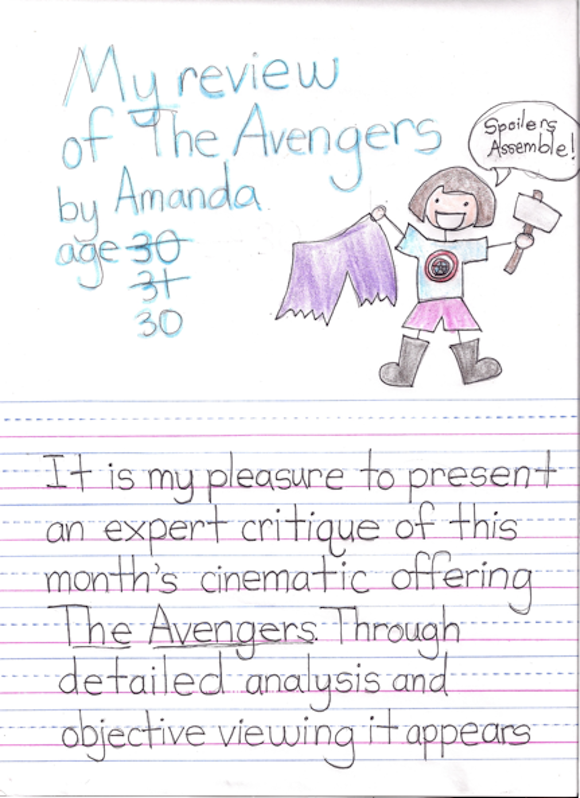 My review
of The Avengers
by Amanda
age 30
31
30
Spoilers
Assemble!
It is my pleasure to present
an expert critique of this
month's cinematic offering
The Avengers. Through
detailed analysis and
objective viewing it appears